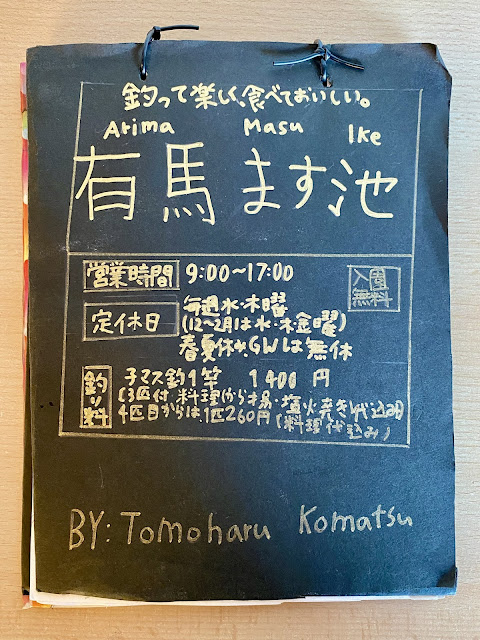 釣って楽しく、食べておいしい。
Arima Masu Ike
有馬ます池
営業時間 9:00〜17:00
入園無料
定休日 毎週水・木曜
(12〜2月は水・木・金曜)
春夏休み、GWは無休
釣り料 子マス釣り1竿 1400円
(3匹付 料理(から揚・塩火焼き)代込み)
4匹目からは、1匹260円(料理代込み)
BY: Tomoharu Komatsu